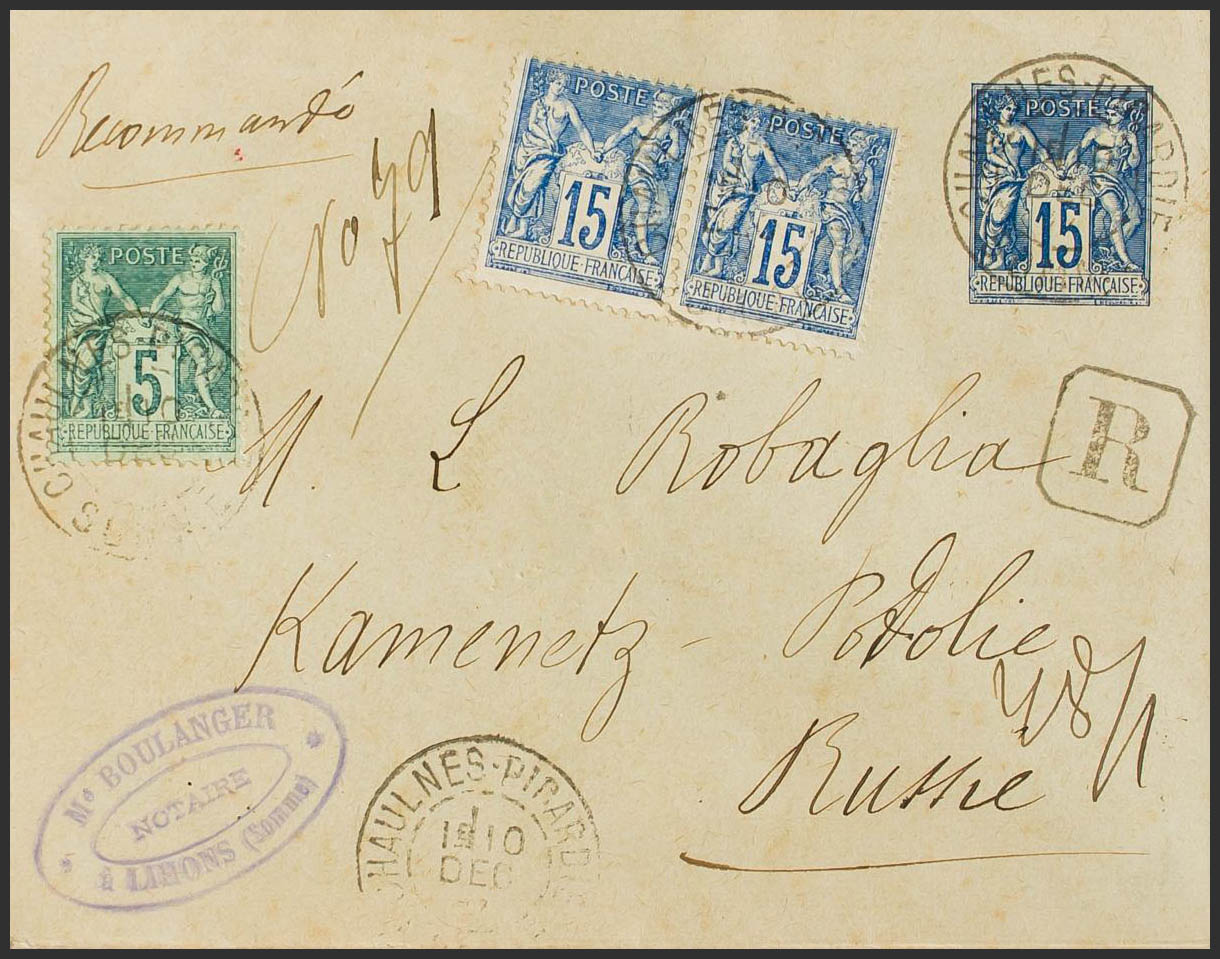 Recommandé
No 79
POSTE
15
REPUBLIQUE FRANÇAISE
POSTE
15
REPUBLIQUE FRANÇAISE
POSTE
15
REPUBLIQUE FRANÇAISE
POSTE
5
REPUBLIQUE FRANÇAISE
R
M. L Robaglia
Kamenetz - Podolie
Russie
Me BOULANGER
NOTAIRE
à LIHONS (Somme)
CHAULNES-PICARDIE
10
DEC